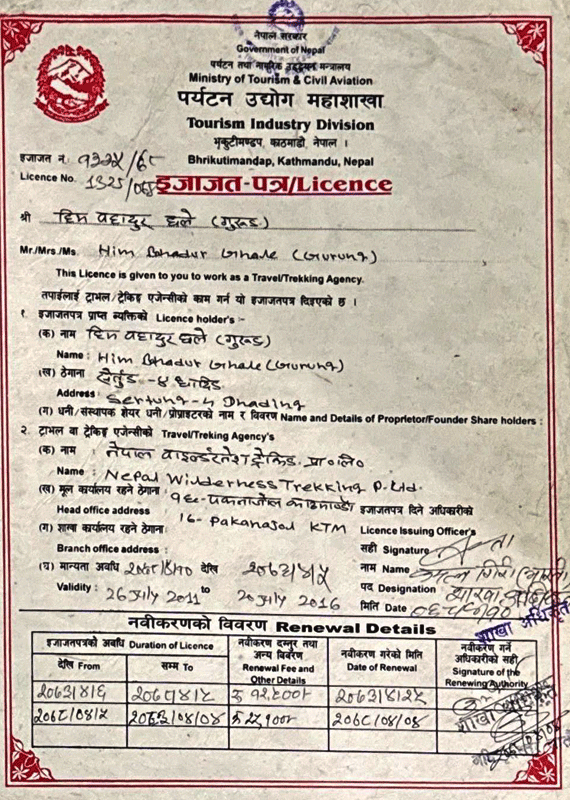 नेपाल सरकार
Government of Nepal
पर्यटन तथा नागरिक उड्डयन मन्त्रालय
Ministry of Tourism & Civil Aviation
पर्यटन उद्योग महाशाखा
Tourism Industry Division
भृकुटीमण्डप, काठमाडौं, नेपाल ।
Bhrikutimandap, Kathmandu, Nepal
इजाजत नं. १३२५/६८
Licence No. 1325/068
इजाजत-पत्र/Licence
श्री हिम बहादुर घले (गुरुङ)
Mr./Mrs./Ms. Him Bhadur Ghale (Gurung)
This Licence is given to you to work as a Travel/Trekking Agency.
तपाईलाई ट्राभल/ट्रेकिङ्ग एजेन्सीको काम गर्न यो इजाजतपत्र दिइएको छ ।
१. इजाजतपत्र प्राप्त व्यक्तिको Licence holder's :-
(क) नाम हिम बहादुर घले (गुरुङ)
Name : Him Bhadur Ghale (Gurung)
(ख) ठेगाना सेर्तुङ -४ धादिङ
Address : Sertung-4 Dhading
(ग) धनी/संस्थापक शेयर धनी/प्रोप्राइटरको नाम र विवरण Name and Details of Proprietor/Founder Share holders :
२. ट्राभल वा ट्रेकिङ्ग एजेन्सीको Travel/Treking Agency's
(क) नाम : नेपाल वाइल्डरनेश ट्रेकिङ प्रा०लि०
Name : Nepal Wilderness Trekking P. Ltd.
(ख) मूल कार्यालय रहने ठेगाना १६-पकनाजोल काठमाडौं इजाजतपत्र दिने अधिकारीको
Head office address 16- Pakanajol KTM Licence Issuing Officer's
(ग) शाखा कार्यालय रहने ठेगाना: सही Signature
Branch office address : नाम Name
(घ) मान्यता अवधि २०६८/४/१० देखि २०७३/४/५ पद Designation
Validity : 26 July 2011 to 20 July 2016 मिति Date
शाखा अधिकृत
नवीकरणको विवरण Renewal Details
इजाजतपत्रको अवधि Duration of Licence
देखि From सम्म To
नवीकरण दस्तुर तथा अन्य विवरण Renewal Fee and Other Details
नवीकरण गरेको मिति Date of Renewal
नवीकरण गर्ने अधिकारीको सही Signature of the Renewing Authority
शाखा अधिकृत